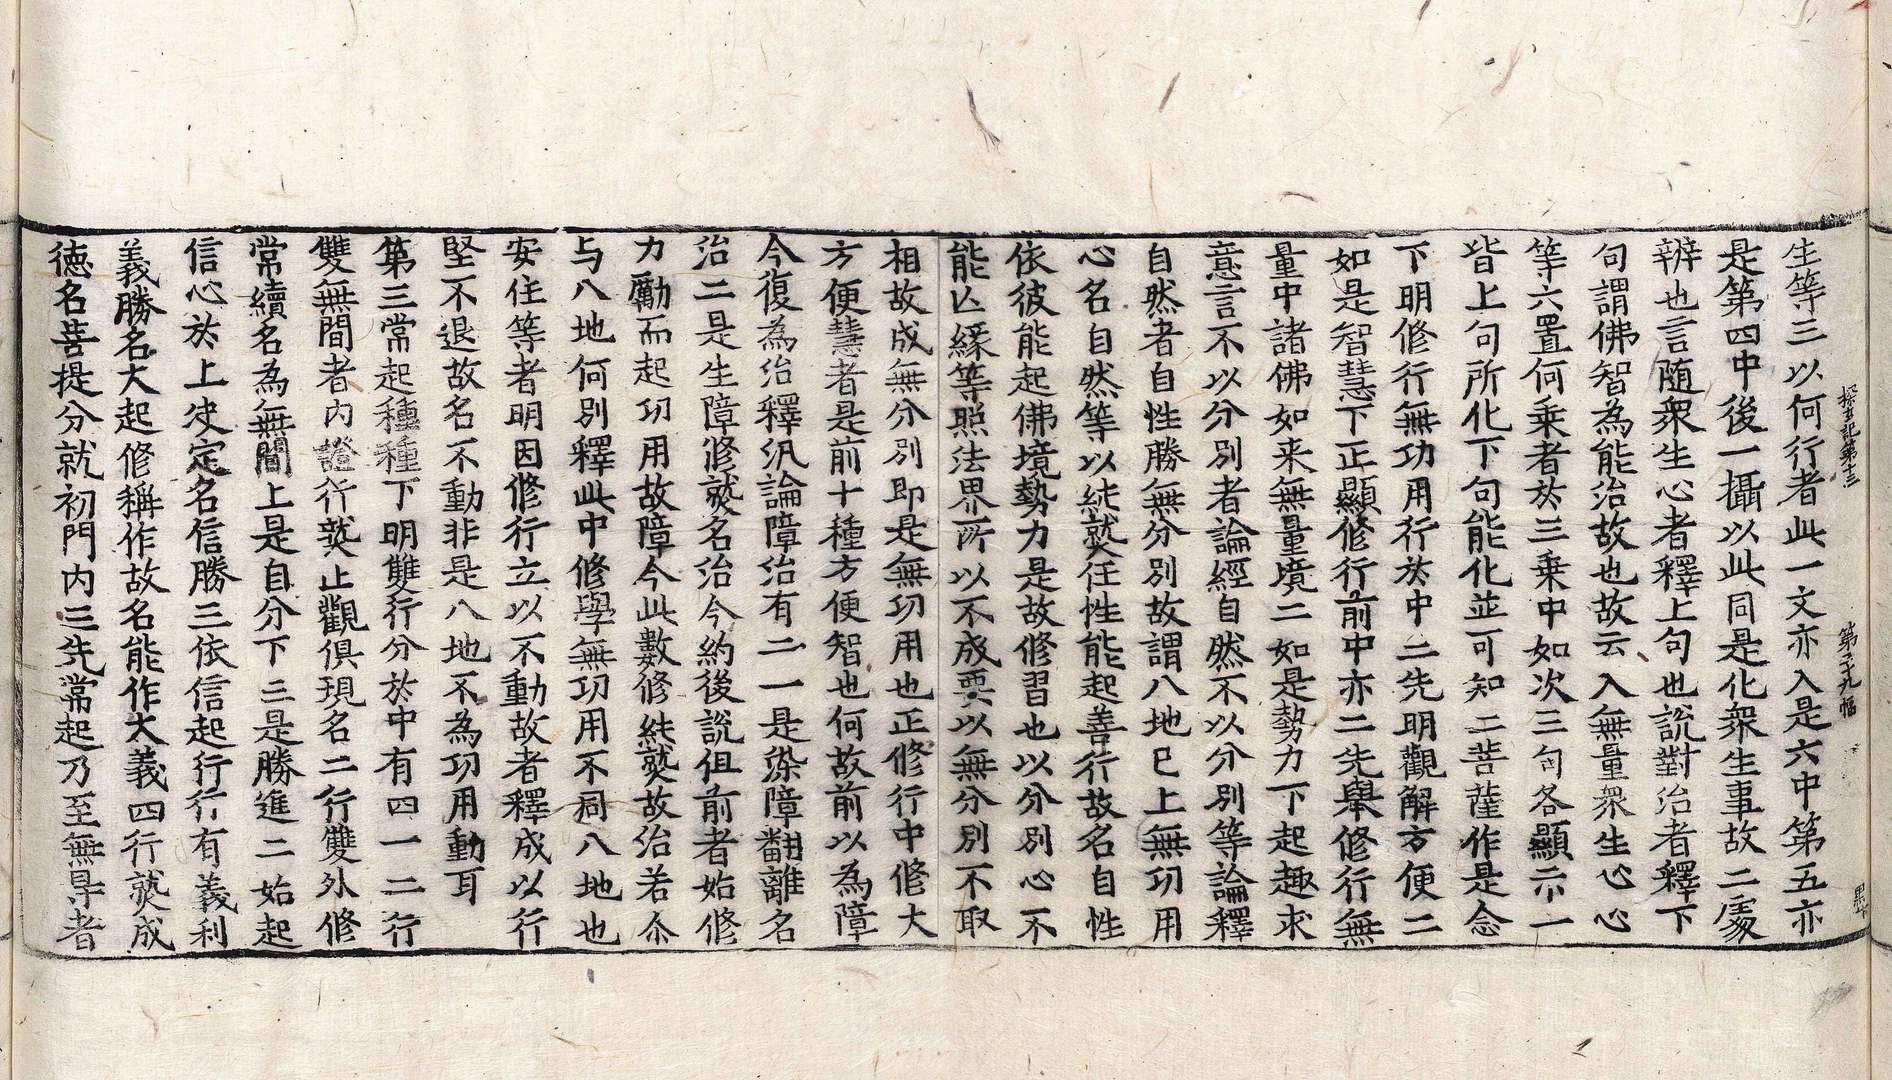 探玄記第十三　第二十九幅
生等三以何行者此一文亦入是六中第五亦
是第四中後一攝以此同是化衆生事故二䖏
辨也言随衆生心者釋上句也說對治者釋下
句謂佛智為能治故也故云入無量衆生心心
等六置何乗者於三乗中如次三句各顯示一
皆上句所化下句能化並可知二菩薩作是念
下明修行無功用行於中二先明觀解方便二
如是智慧下正顯修行前中亦二先舉修行無
量中諸佛如来無量境二如是勢力下起趣求
意言不以分別者論經自然不以分別等論釋
自然者自性勝無分別故謂八地已上無功用
心名自然等以純熟任性能起善行故名自性
依彼能起佛境勢力是故修習也以分別心不
能亡緣等照法界所以不成要以無分別不取
相故成無分別即是無功用也正修行中修大
方便慧者是前十種方便智也何故前以為障
今復為治釋汎論障治有二一是染障翻離名
治二是生障修熟名治今約後說但前者始修
力勵而起功用故障今此數修純熟故治若尒
与八地何別釋此中修學無功用不同八地也
安住等者明因修行立以不動故者釋成以行
堅不退故名不動非是八地不為功用動耳
第三常起種種下明雙行分於中有四一二行
雙無間者內證行熟止觀俱現名二行雙外修
常續名為無間上是自分下三是勝進二始起
信心於上决定名信勝三依信起行行有義利
義勝名大起修稱作故名能作大義四行熟成
德名菩提分就初門内三先常起乃至無㝵者